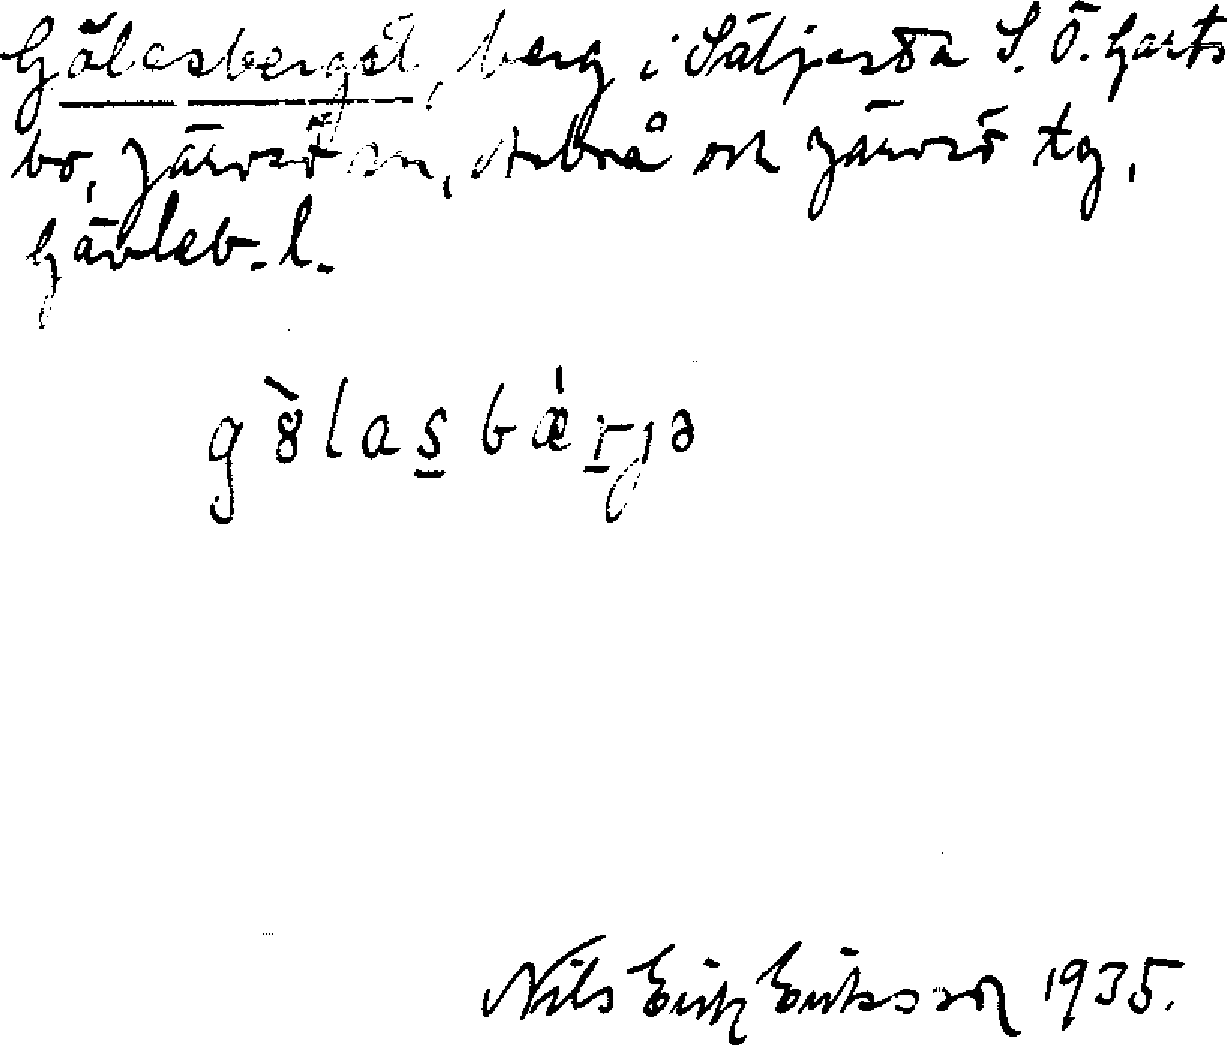 Gölasberget, berg i Säljesta S. Ö. Karts
bo, Järvsö sn, Arbrå och Järvsö tg,
Gävleb. l.
gὸ̈lasbǽrjə
Nils Erik Eriksson 1935.